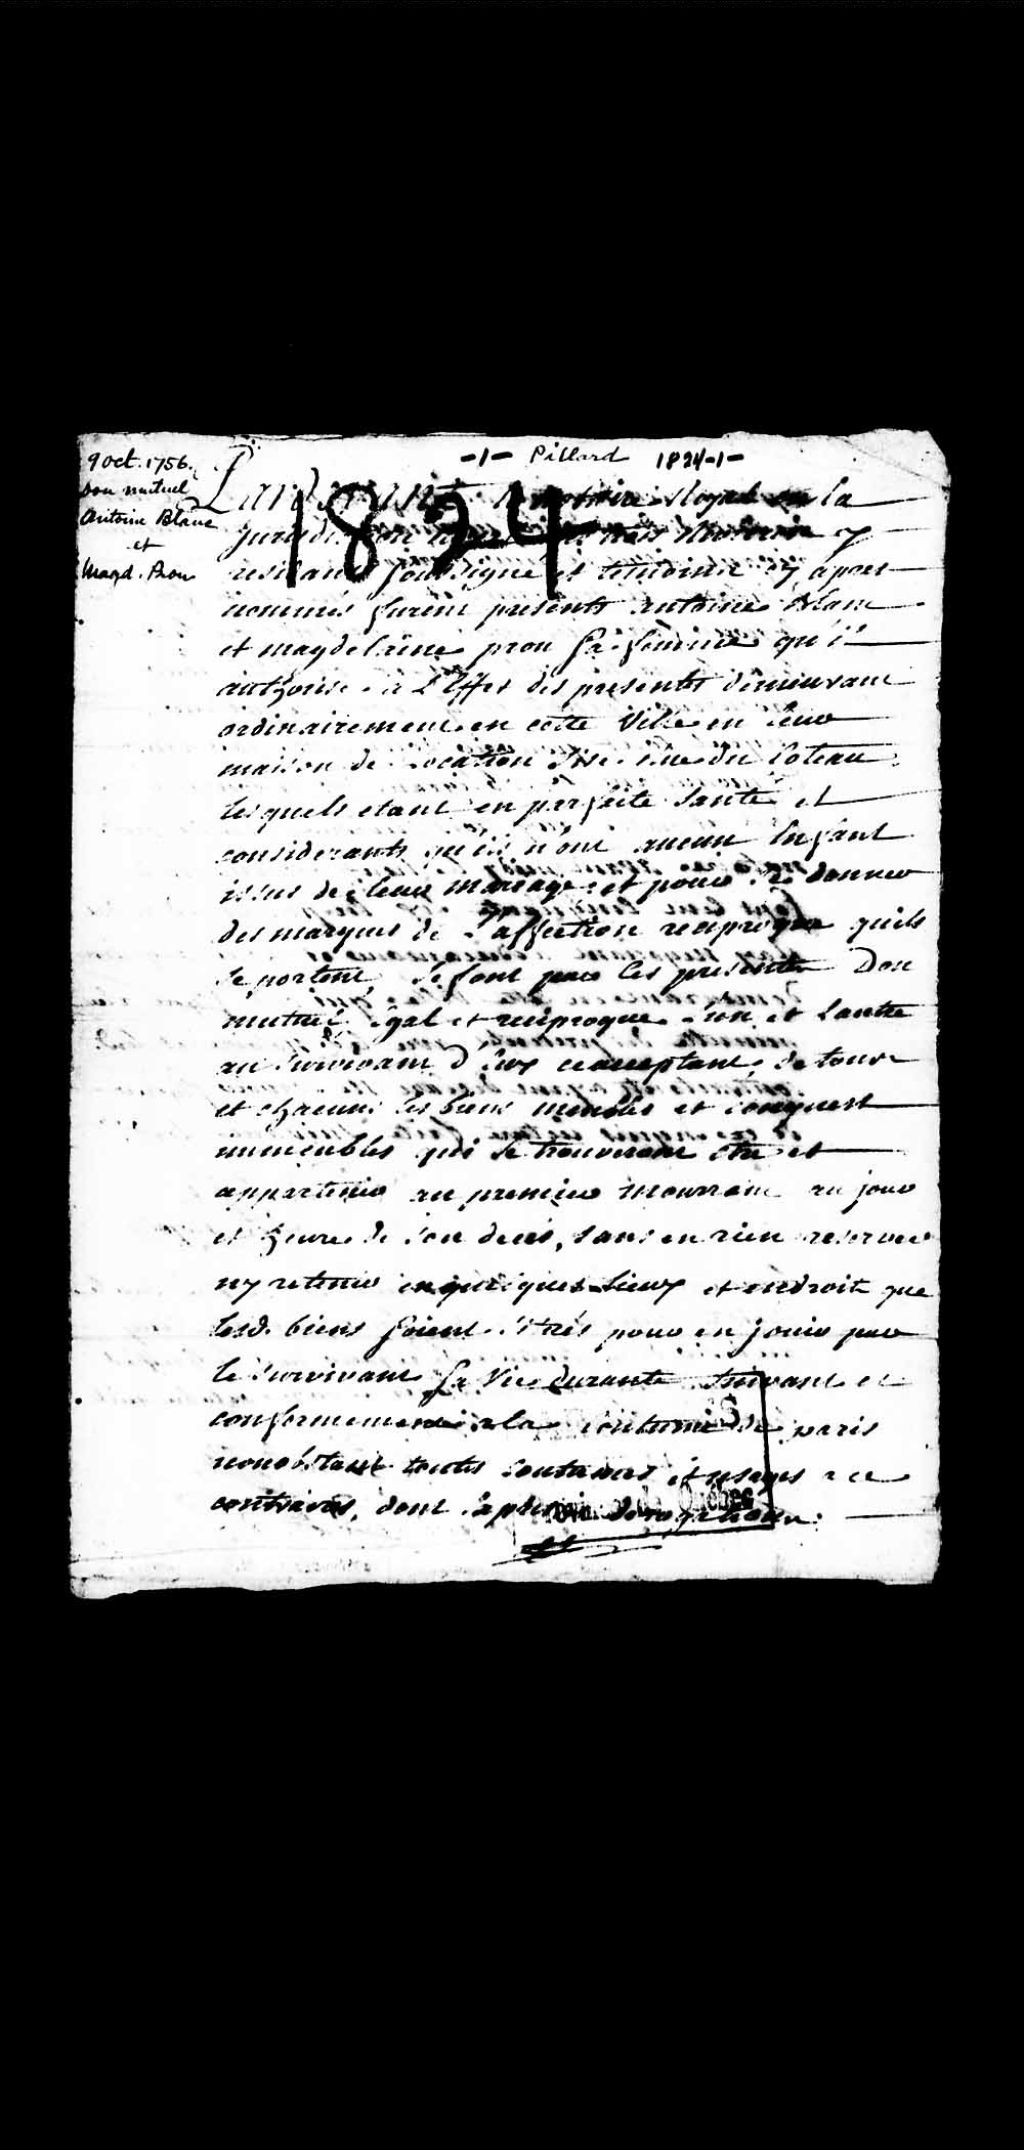 9 oct. 1756.
Don mutuel
Antoine Blanc
et
Magd. Prou
-1- Pillard 1824-1-
1824
Pardevant Notaire Royal en la
Jurisdiction trois Rivieres y
residant soussigné et temoins cy apres
nommés furent presents antoine blanc
et magdelaine prou sa femme qu'il
authorise a l'Effet des presentes demeurant
ordinairement en cette Ville en leur
maison de location sise rue du Coteau
lesquels etant en parfaite santé et
considerants qu'ils n'ont aucun Enfant
issus de leur mariage et pour se donner
des marques de l'affection reciproque quils
se portent, se font par ces presentes Don
mutuel Egal et reciproque l'un et lautre
au survivant d'Eux ce acceptant de tous
et chacuns les biens meubles et conquest
immeubles qui se trouveront etre et
appartenir au premier mourrant au jour
et heure de son decés, sans en rien reserver
ny retenir en quelques lieux et endroit que
lesd. biens soient situés pour en jouir par
le survivant sa Vie durante suivant et
conformement a la coutume de paris
nonobstant toutes coutumes et usages a ce
contraires, dont a derogation.
Québec